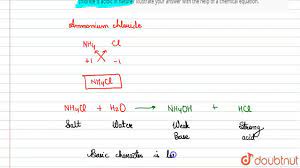 chloride is acidic in nature. Illustrate your answer with the help of a chemical equation.
Ammonium chloride
NH4 Cl
+1 -1
NH4Cl
NH4Cl + H2O → NH4OH + HCl
Salt Water Weak Strong
Base acid
Basic character is
doubtnut